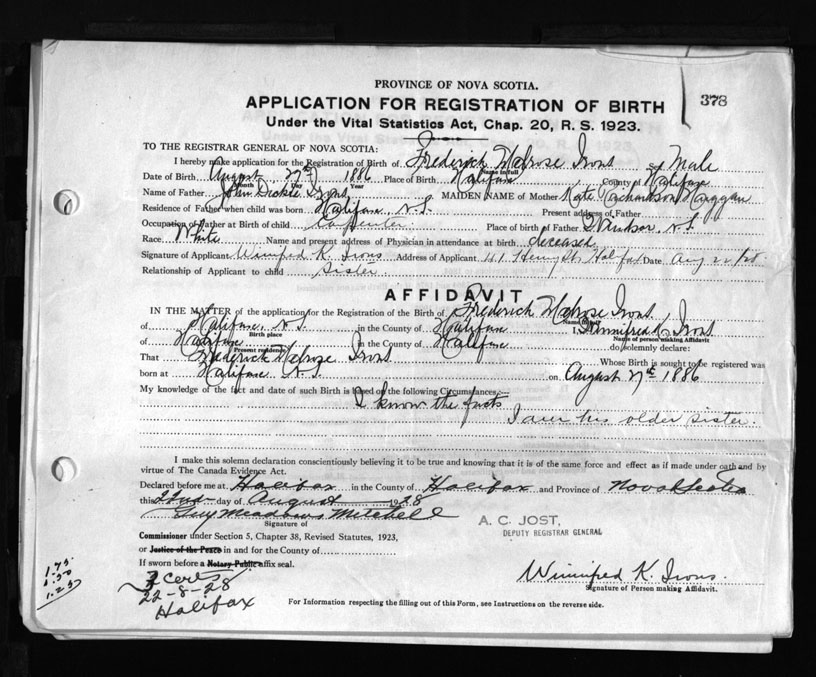 378
PROVINCE OF NOVA SCOTIA.
APPLICATION FOR REGISTRATION OF BIRTH
Under the Vital Statistics Act, Chap. 20, R. S. 1923.
TO THE REGISTRAR GENERAL OF NOVA SCOTIA:
I hereby make application for the Registration of Birth of Frederick Melrose Irons Male
Name in full
Date of Birth August 27th 1886 Place of Birth Halifax County of Halifax
Month Day Year
Name of Father John Dickie Irons MAIDEN NAME of Mother Kate Richardson
Residence of Father when child was born Halifax N.S. Present address of Father
Occupation of Father at Birth of child Carpenter Place of birth of Father Windsor N.S.
Race White Name and present address of Physician in attendance at birth deceased
Signature of Applicant Winifred K. Irons Address of Applicant 41 Henry St. Halifax Date Aug 22/28
Relationship of Applicant to child sister
AFFIDAVIT
IN THE MATTER of the application for the Registration of the Birth of Frederick Melrose Irons
Name in full
of Halifax, N.S. in the County of Halifax I, Winnifred K. Irons
Birth place Name of person making Affidavit
of Halifax in the County of Halifax do solemnly declare:
Present residence
That Frederick Melrose Irons Whose Birth is sought to be registered was
born at Halifax N.S. on August 27th 1886
My knowledge of the fact and date of such Birth is based on the following Circumstances:—
I know the facts
I am his older sister.
I make this solemn declaration conscientiously believing it to be true and knowing that it is of the same force and effect as if made under oath and by
virtue of The Canada Evidence Act.
Declared before me at Halifax in the County of Halifax and Province of Nova Scotia
this 22nd day of August 1928
Guy Meadows Mitchell
Signature of
A. C. JOST,
DEPUTY REGISTRAR GENERAL
Commissioner under Section 5, Chapter 38, Revised Statutes, 1923,
or Justice of the Peace in and for the County of
If sworn before a Notary Public affix seal.
Winnifred K. Irons.
Signature of Person making Affidavit.
1.75
1.25
Certs
22-8-28
Halifax
For Information respecting the filling out of this Form, see Instructions on the reverse side.